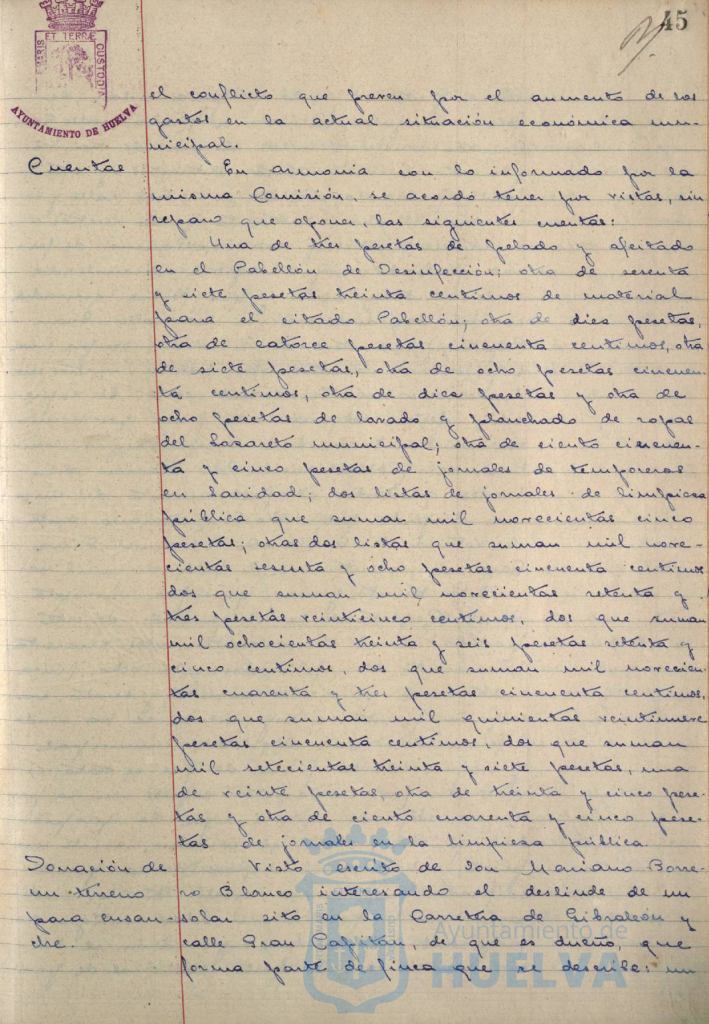 45
ET TERRÆ
CUSTODIA
AYUNTAMIENTO DE HUELVA
el conflicto que preven por el aumento de los
gastos en la actual situación económica mu-
nicipal.
Cuentas
En armonia con lo informado por la
misma Comisión, se acordó tener por vistas, sin
reparo que oponer, las siguientes cuentas:
Una de tres pesetas de pelado y afeitado
en el Pabellón de Desinfección; otra de sesenta
y siete pesetas treinta centimos de material
para el citado Pabellón; otra de diez pesetas,
otra de catorce pesetas cincuenta centimos, otra
de siete pesetas, otra de ocho pesetas cincuen-
ta centimos, otra de diez pesetas y otra de
ocho pesetas de lavado y planchado de ropas
del Lazareto municipal; otra de ciento cincuen-
ta y cinco pesetas de jornales de temporeros
en Sanidad; dos listas de jornales de limpieza
pública que suman mil novecientas cinco
pesetas; otras dos listas que suman mil nove-
cientas sesenta y ocho pesetas cincuenta centimos
dos que suman mil novecientas setenta y
tres pesetas veinticinco centimos, dos que suman
mil ochocientas treinta y seis pesetas setenta y
cinco centimos, dos que suman mil novecien-
tas cuarenta y tres pesetas cincuenta centimos,
dos que suman mil quinientas veintinueve
pesetas cincuenta centimos, dos que suman
mil setecientas treinta y siete pesetas, una
de veinte pesetas, otra de treinta y cinco pese-
tas y otra de ciento cuarenta y cinco pese-
tas de jornales en la limpieza pública.
Donación de
un terreno
para ensan-
che.
Visto escrito de Don Mariano Borre-
ro Blanco interesando el deslinde de un
solar sito en la Carretera de Gibraleón y
calle Gran Capitán, de que es dueño, que
forma parte de finca que se describe: un
Ayuntamiento de
HUELVA